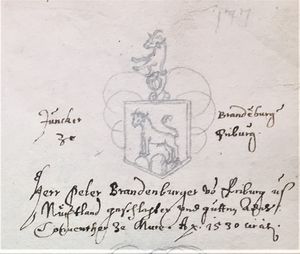 177
Juncker
ze
Brandeburg
Friburg
Herr Peter Brandenburger vō Friburg us
Nüchtland geschlechter und gutten Adels
Conventher Ze Mure Ax. 1530